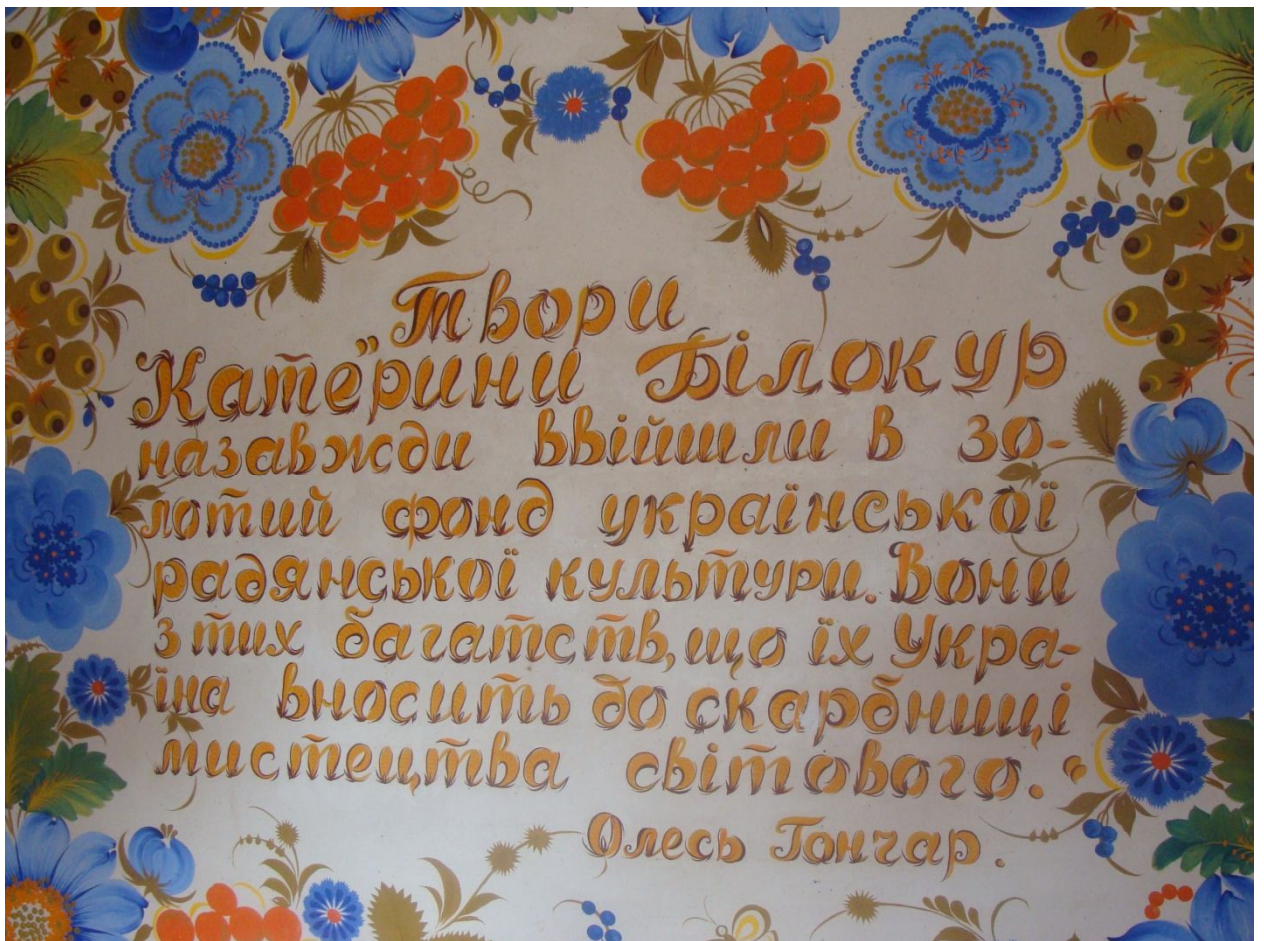 Твори
"Катерини Білокур
назавжди ввійшли в зо-
лотий фонд української
радянської культури. Вони
з тих багатств, що їх Укра-
їна вносить до скарбниці
мистецтва світового."
Олесь Гончар.